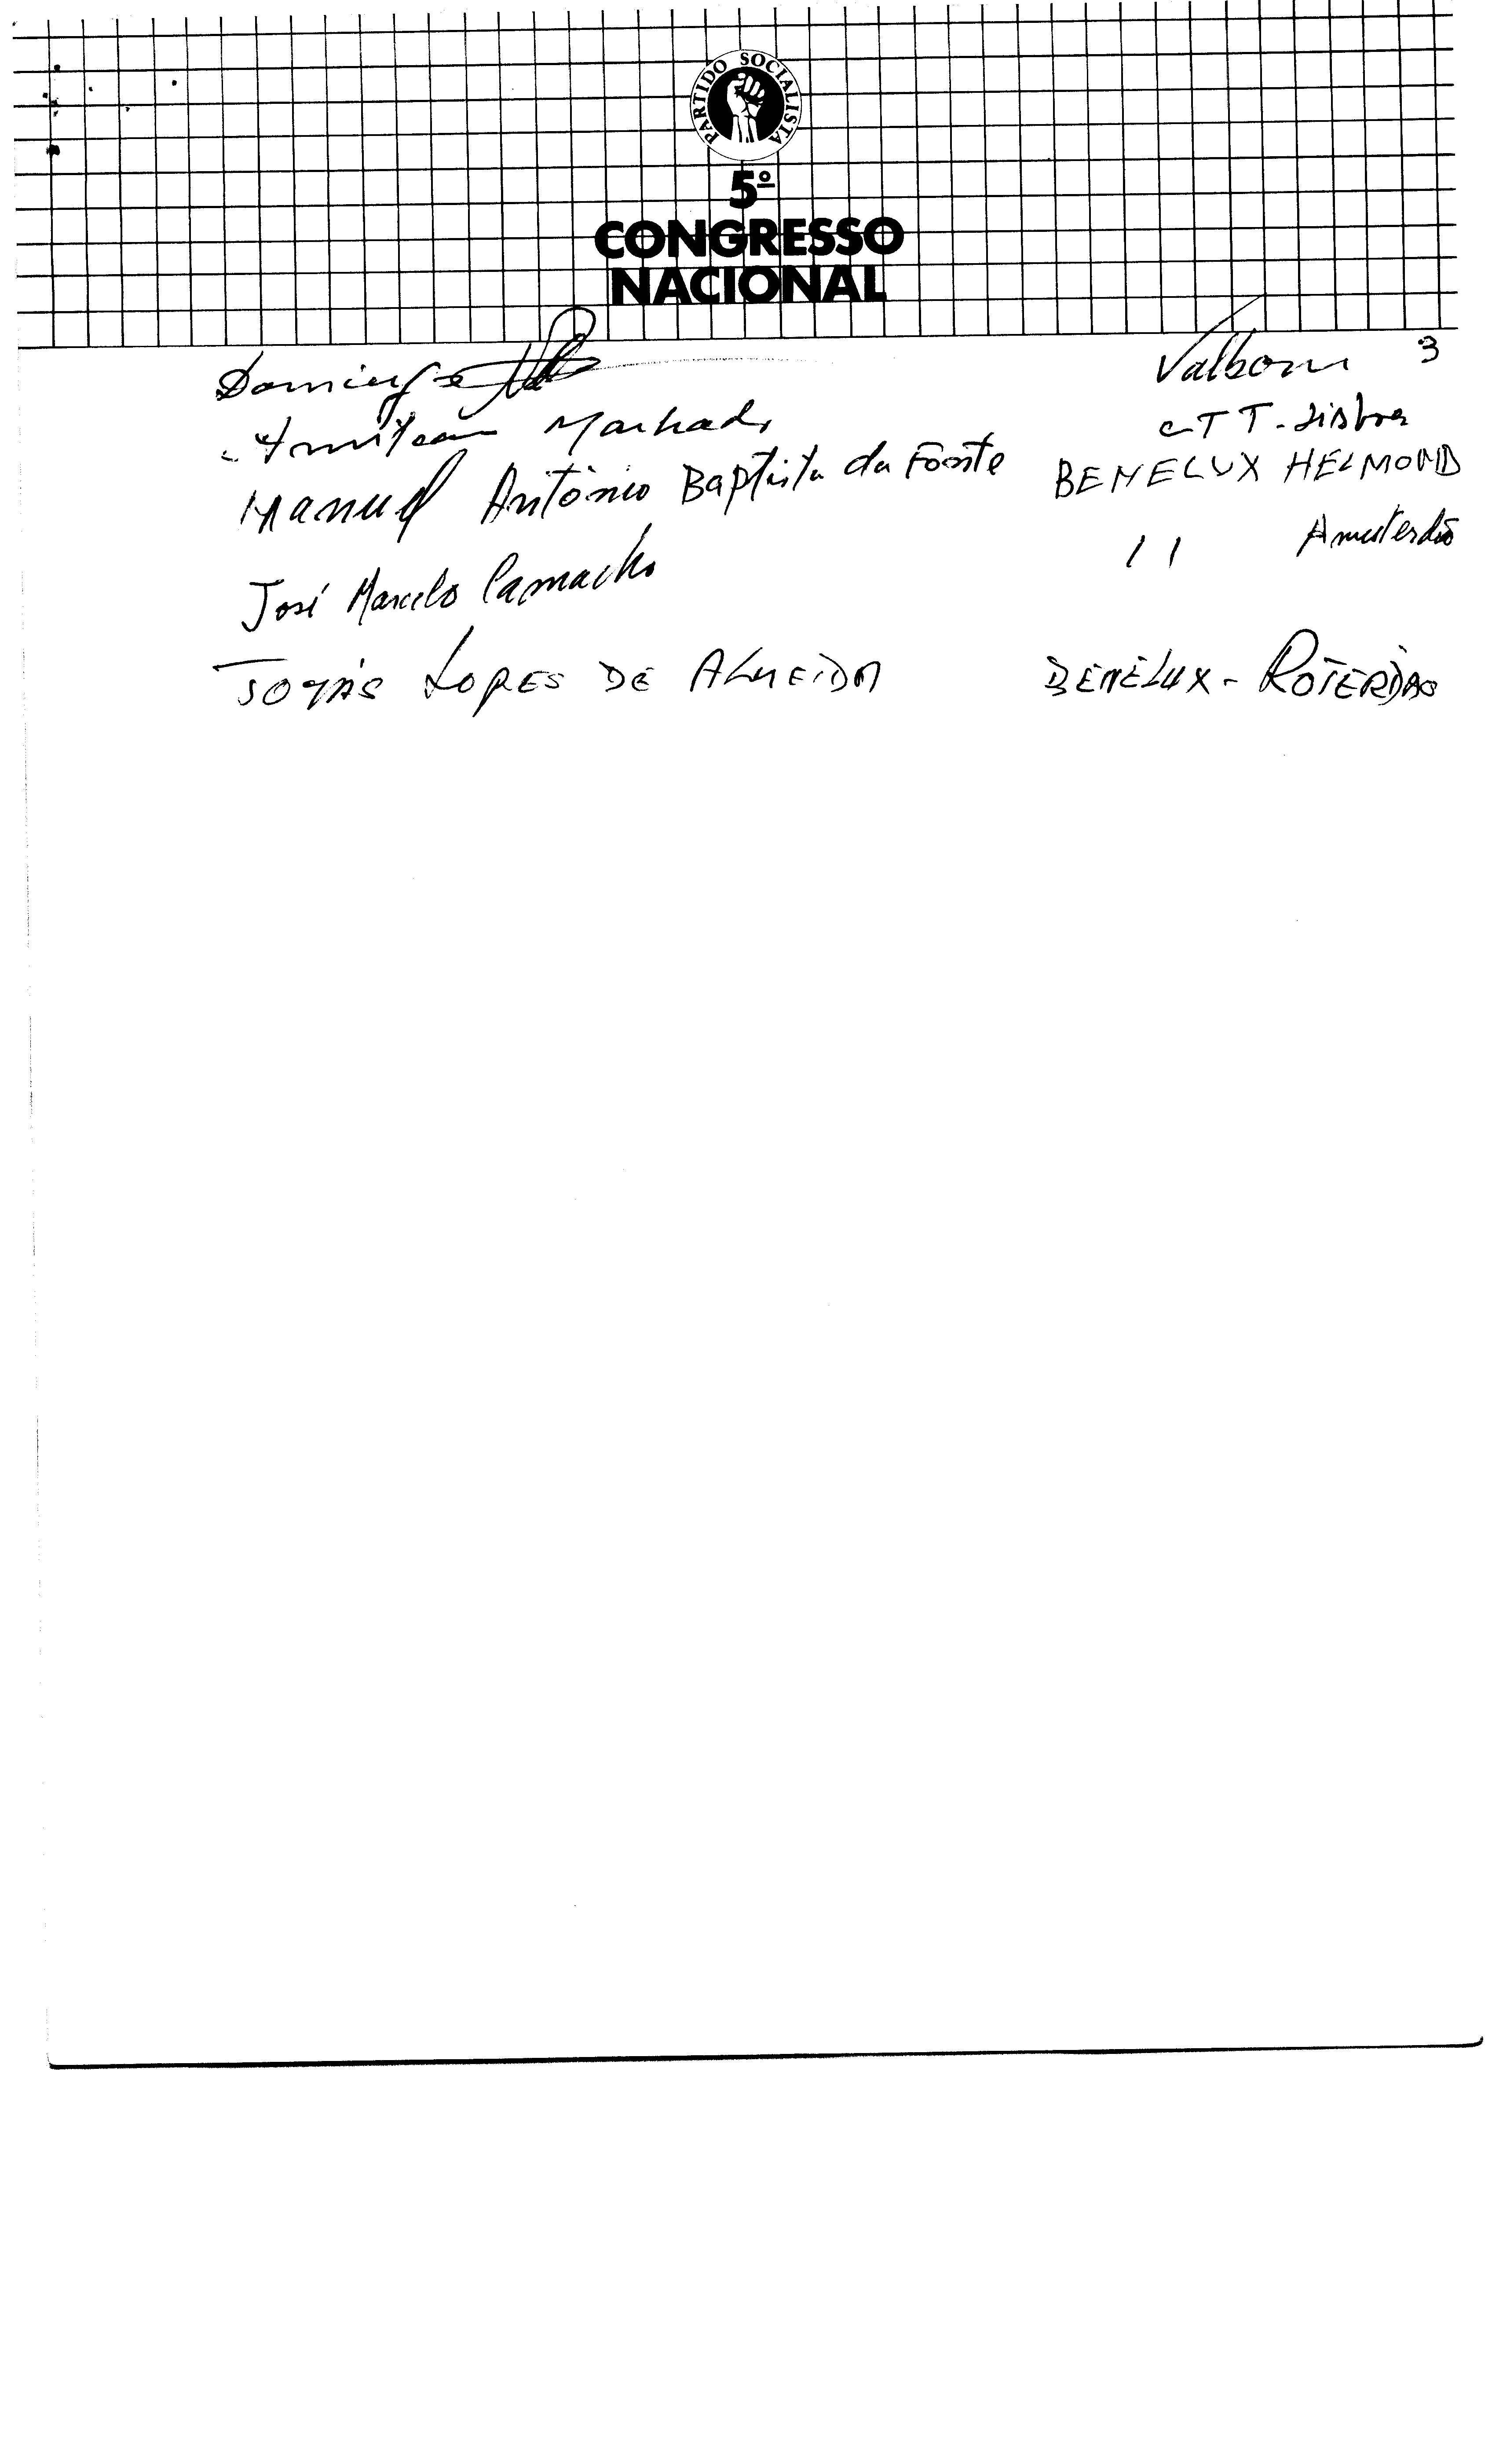 PARTIDO SOCIALISTA
5º
CONGRESSO
NACIONAL
3
Valbom
Machado CTT - Lisboa
Manuel António Baptista da Fonte BENELUX HELMOND
José Marcelo Camacho 11 Amsterdão
TOMÁS LOPES DE ALMEIDA BENELUX - ROTERDÃO